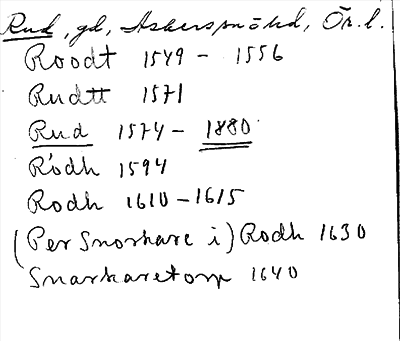 Rud, gd, Askersunds lfs, Ör. l.
Roodt 1549 - 1556
Rudtt 1571
Rud 1574 - 1880
Rödh 1594
Rodh 1610 - 1615
(Per Snorkare i) Rodh 1630
Snarkaretorp 1640